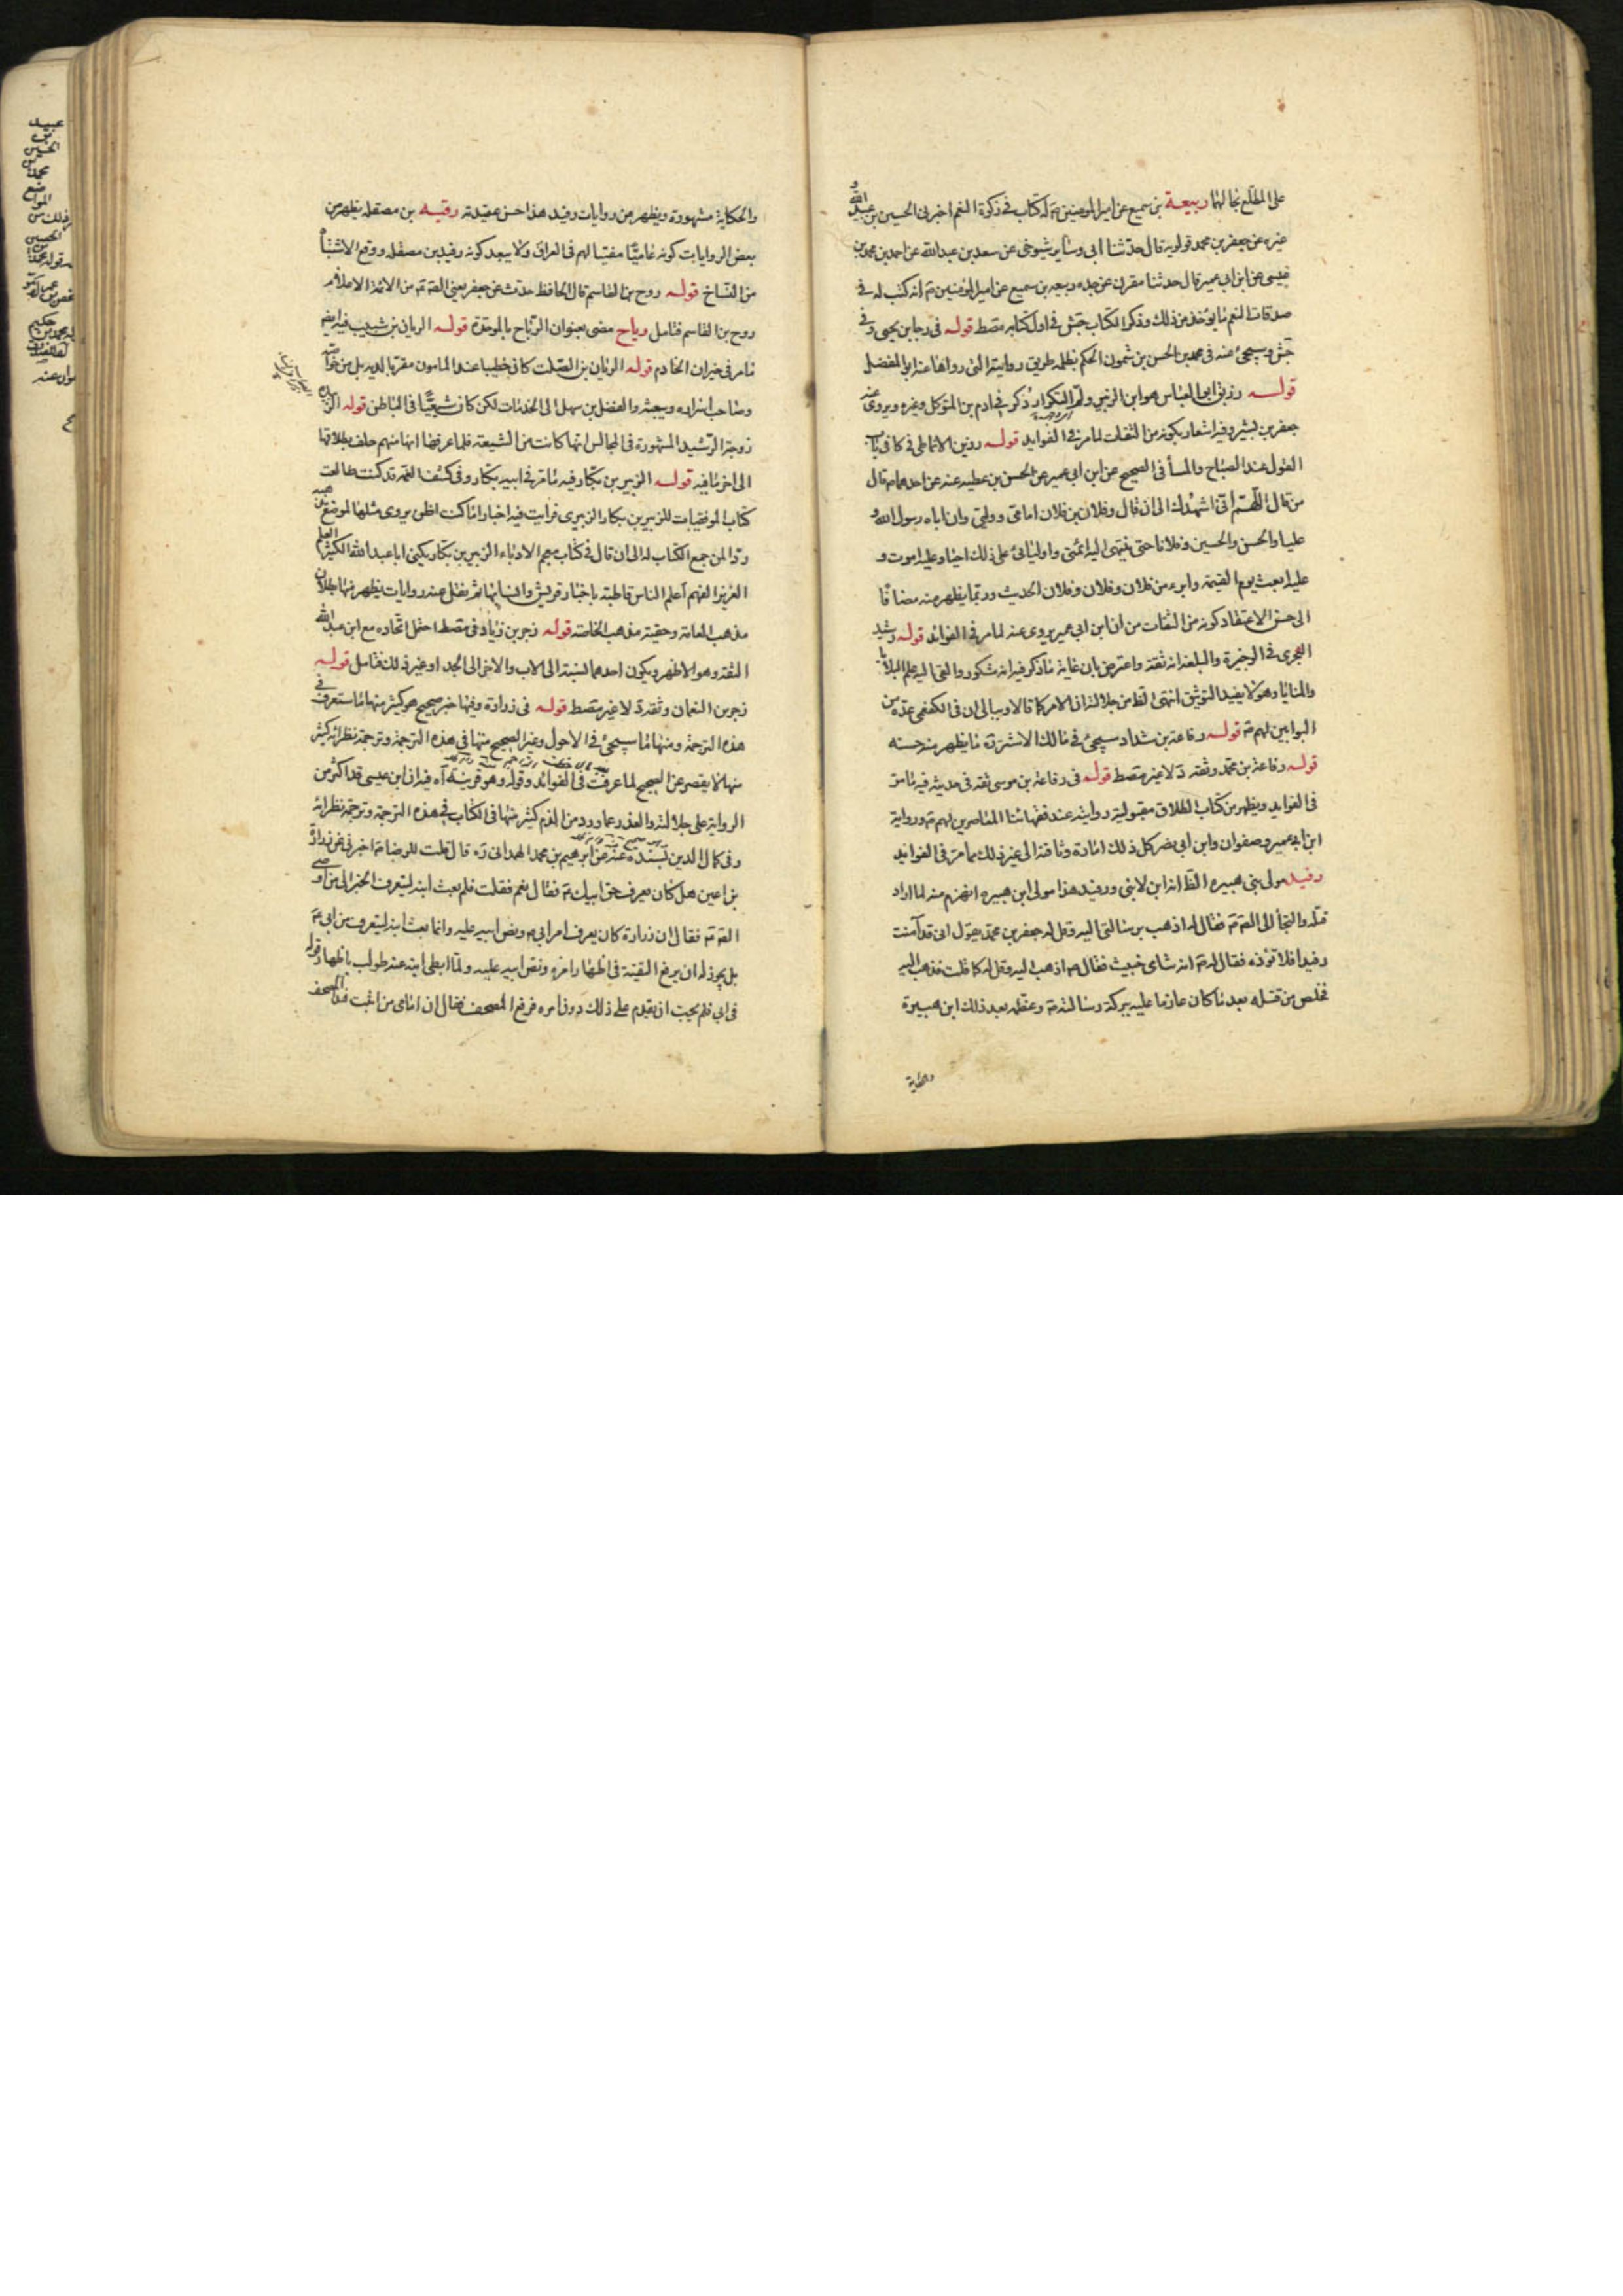 على المطلع بحالهما ربيعة بن سميع عن امير المومنين ع له كتاب في زكوة النعم اخبرني الحسين بن عبيد الله و
غيره عن جعفر بن محمد قولويه قال حدثنا ابي وساير شيوخي عن سعد بن عبد الله عن احمد بن محمد بن
عيسى عن ابن ابي عمير قال حدثنا مقرن عن جده ربيعه بن سميع عن امير المؤمنين ع انه كتب له في
صدقات النعم ما يؤخذ من ذلك وذكر الكتاب جش في اول كتابه متصط قوله في رجا بن يحيى وفي
جش وسيجئ عنه في محمد بن الحسن بن شمون الحكم بظلمه طريق روايته التي رواها عنه ابو المفضل
قوله رزيق ابو العباس هو ابن الزبير ذكر في ادم بن المتوكل وغيره ويروى عنه
جعفر بن بشير وفيه اشعار بكونه من الثقات لما مر في الفوايد قوله رزين الانماطي في كا في باب
القول عند الصباح والمسأ في الصحيح عن ابن ابي عمير عن الحسن بن عطيه عنه عن احدهما ع قال
من قال اللهم اني اشهدك الى ان قال وفلان بن فلان امامي ووليي وان اباه رسول الله و
عليا والحسن والحسين وفلانا حتى ينتهي اليه ائمتي واوليائي على ذلك احيا وعليه اموت و
عليه ابعث يوم القيمة وابرء من فلان وفلان وفلان الحديث وربما يظهر منه مضافا
الى حسن الاعتقاد كونه من الثقات من ان ابن ابي عمير يروى عنه لما مر في الفوائد قوله رشيد
الهجرى في الوجيزة والبلغه انه ثقة واعترض بان غاية ما ذكر فيه انه مشكور والقى اليه علم البلايا
والمنايا وهو لا يفيد التوثيق انتهى الظ من جلالته ان الامر كما قالا وببالي ان في الكفعمي عده من
البوابين لهم ع قوله رفاعة بن شداد سيجئ في مالك الاشتر ره ما يظهر منه حسنه
قوله رفاعة بن محمد وثقه د لا غير متصط قوله في رفاعة بن موسى ثقه في حديثه فيه ما مر
في الفوايد ويظهر من كتاب الطلاق مقبولية روايته عند فقهائنا المعاصرين لهم ع ورواية
ابن ابي عمير وصفوان وابن ابي نصر كل ذلك امارة وثاقته الى غير ذلك مما مر في الفوايد
رفيد مولى بني هبيره الظ انه ابن لابني ورفيد هذا مولى ابن هبيره انهزم منه لما اراد
قتله والتجأ الى الصه ع فقال له اذهب برسالتي اليه وقل له جعفر بن محمد يقول اني قد آمنت
رفيدا فلا تؤذه فقال له ع انه شامي خبيث فقال ع اذهب اليه وقل له كما قلت فذهب اليه
فخلص من قتله بعد ما كان عازما عليه ببركة رسالته ع وعظمه بعد ذلك ابن هبيرة
والحكاية
والحكاية مشهورة ويظهر من روايات رفيد هذا حسن عقيدته رقبه بن مصقله يظهر من
بعض الروايات كونه عاميّا مفتيا لهم في العراق ولا يبعد كونه رفيد بن مصقله ووقع الاشتباه
من النساخ قوله روح بن القاسم قال الحافظ حدث عن جعفر يعني الصه ع من الائمة الاعلام
روح بن القاسم فتامل رياح مضى بعنوان الرباح بالموحدة قوله الريان بن شبيب فيه ايض
ما مر في خيران الخادم قوله الريان بن الصلت كان خطيبا عند المامون مقربا لديه بل من خواصه
وصاحب اسراره ويبعثه والفضل بن سهل الى الخدمات لكن كان شيعيّا في الباطن قوله
زوجة الرشيد المشهورة في المجالس انها كانت من الشيعة فلما عرفها انها منهم حلف بطلاقها
الى اخر ما فيه قوله الزبير بن بكار فيه ما مر في ابيه بكار وفي كشف الغمة قد كنت طالعت
كتاب الموفقيات للزبير بن بكار الزبيرى فرايت فيه اخبارا ما كنت اظن يروى مثلها لموضع
لمن جمع الكتاب له الى ان قال في كتاب معجم الادباء الزبير بن بكار يكنى ابا عبد الله الكثير العلم
الغزير الفهم أعلم الناس قاطبة باخبار قريش وانسابها ثم ينقل عنه روايات يظهر منها بطلان
مذهب العامة وحقية مذهب الخاصة قوله زجر بن زياد في متصط احتمل اتحاده مع ابن عبد الله
الثقة وهو الاظهر ويكون احدهما نسبة الى الاب والاخر الى الجد او غير ذلك فتامل قوله
زجر بن النعمان وثقه د لا غير متصط قوله في زرارة وفيها خبر صحيح هو كثير منها ما ستعرف في
هذه الترجمة ومنها ما سيجئ في الاحول وغير الصحيح منها في هذه الترجمة وترجمة نظرائه كثير
منها لا يقصر عن الصحيح لما عرفت في الفوائد وقوله وهو قرينة آه فيه ان ابن عيسى قد اكثر من
الرواية على جلالته والعذر عما ورد من الذم كثير منها في الكتاب في هذه الترجمة وترجمة نظرائه
وفي كمال الدين بسنده عن ابرهيم بن محمد الهمداني ره قال قلت للرضا ع اخبرني عن زرارة
بن اعين هل كان يعرف حق ابيك ع فقال نعم فقلت فلم بعث ابنه ليتعرف الخبر الى من اوصى
الصه ع فقال ان زرارة كان يعرف امر ابي ع ونص ابيه عليه وانما بعث ابنه ليتعرف من ابي ع
بل يجوز له ان يرفع التقية في اظهار امره ونص ابيه عليه ولما ابطى ابنه عنه طولب باظهار قوله
في ابي فلم يحب ان يقدم على ذلك دون امره فرفع المصحف فقال ان امامي من اثبت هذا المصحف